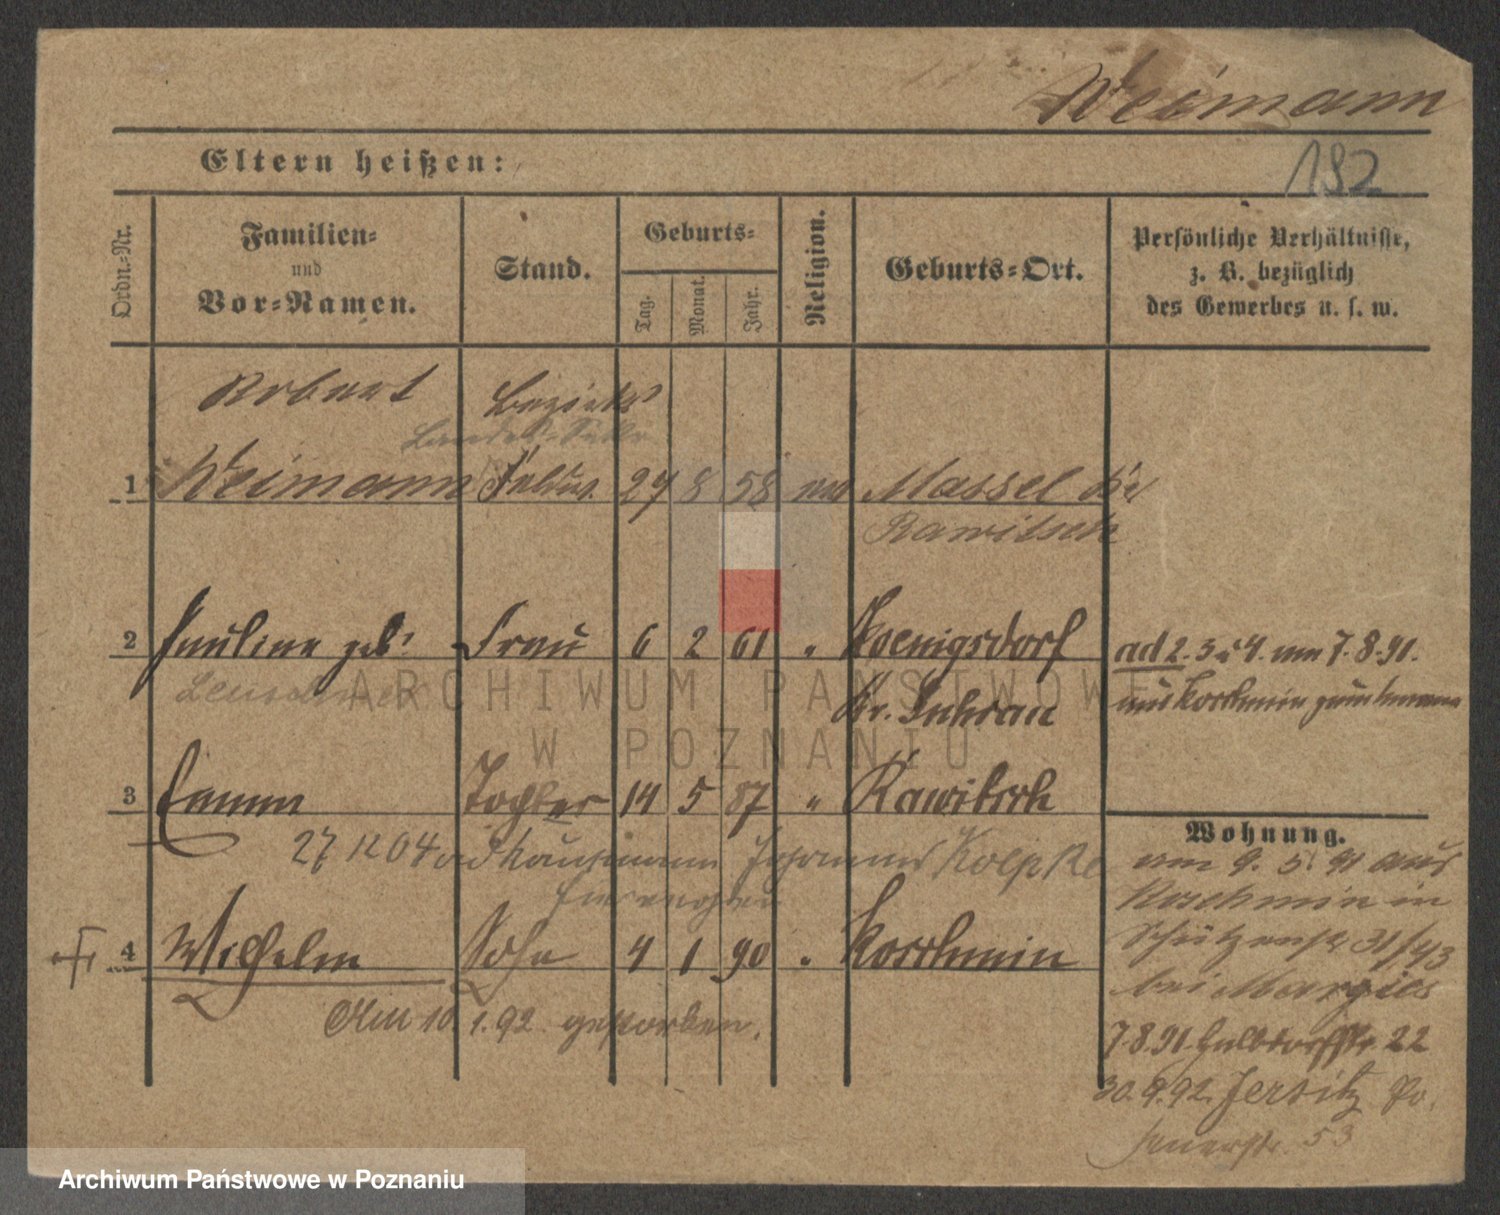 Weimann
Eltern heißen:
192
Ordn.-Nr.
Familien-
und
Vor-Namen.
Stand.
Geburts-
Tag.
Monat.
Jahr.
Religion.
Geburts-Ort.
Persönliche Verhältnisse,
z. B. bezüglich
des Gewerbes u. s. w.
Robert
Bezirks
1 Weimann 27 8 58 Massel Kr
Rawitsch
2 Pauline geb. Frau 6 2 61 " Koenigsdorf
Kr. Guhrau
ad 2. 3 u 4. am 7.8.91.
aus Koschmin
ARCHIWUM PAŃSTWOWE
W POZNANIU
3 Emma Tochter 14 5 87 " Rawitsch
27 12 04 ad Kaufmann Johannes Koepke
4 Wilhelm Sohn 4 1 90 " Koschmin
Am 10.1.92 gestorben.
Wohnung.
am 9. 5. 91 aus
Koschmin in
Schützenstr 31/43
bei
7.8.91. Halbdorfstr. 22
30.9.92. Jersitz Po.
53
Archiwum Państwowe w Poznaniu